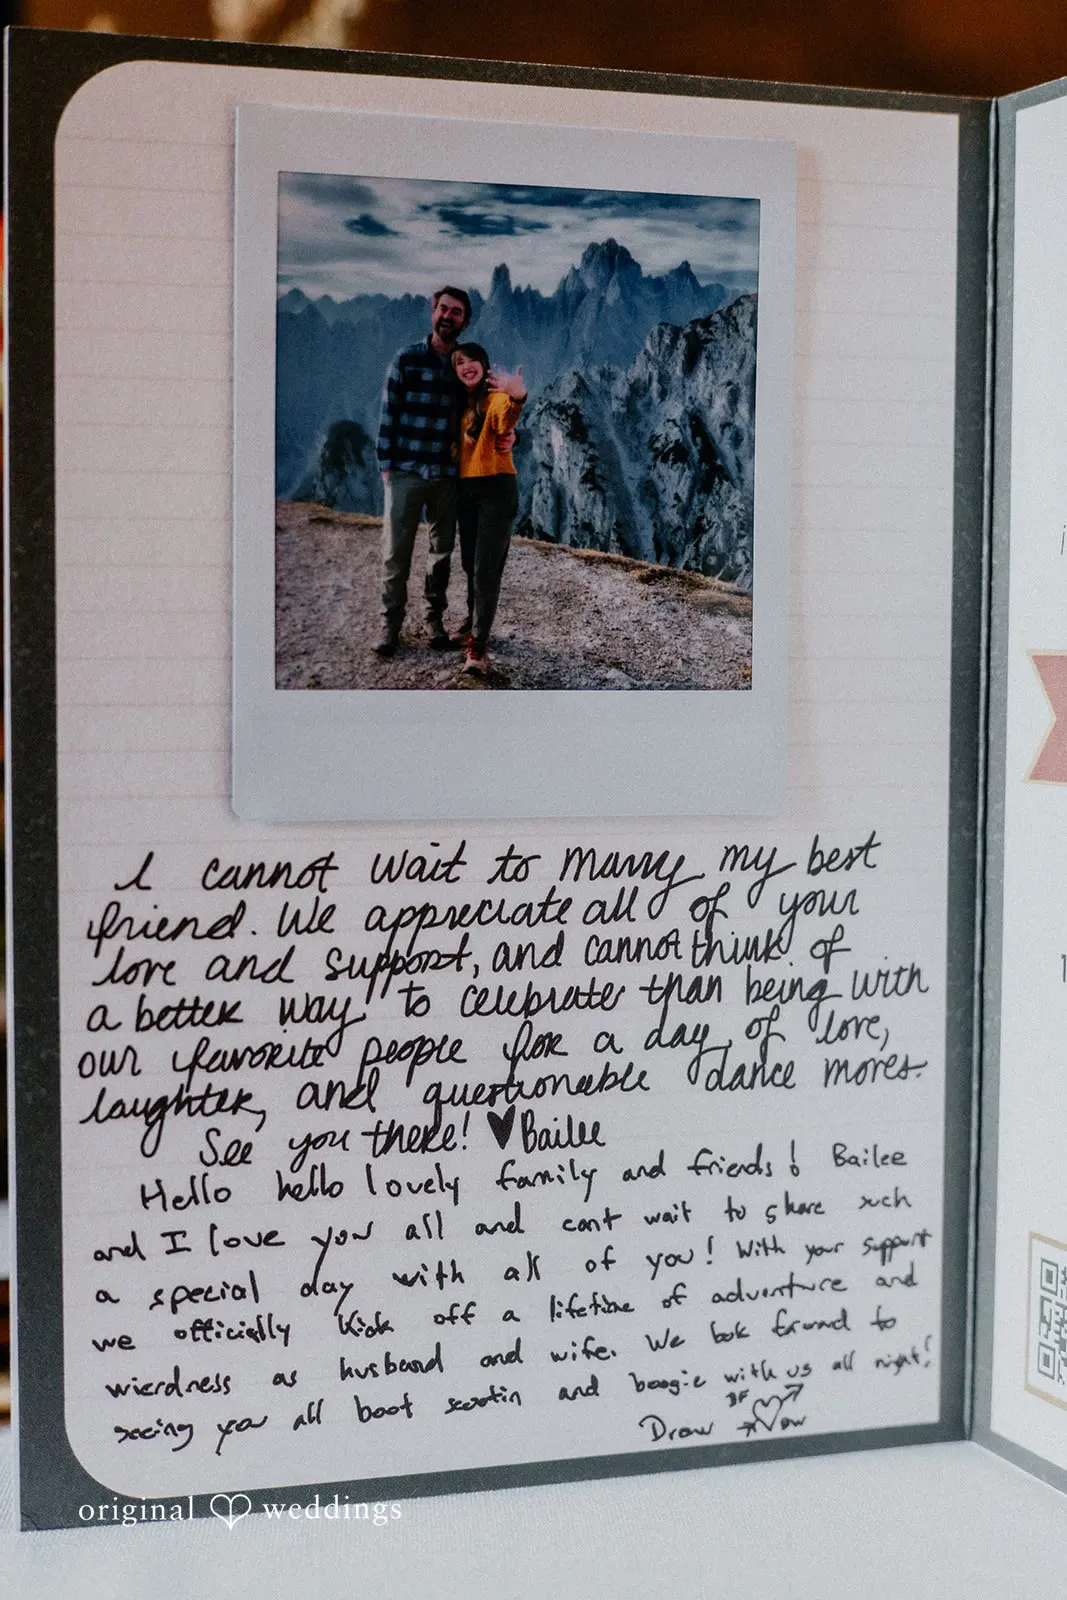 I cannot wait to marry my best
friend. We appreciate all of your
love and support, and cannot think of
a better way to celebrate than being with
our favorite people for a day of love,
laughter, and questionable dance moves.
See you there! ♥Bailee
Hello hello lovely family and friends! Bailee
and I love you all and cant wait to share such
a special day with all of you! With your support
we officially kick off a lifetime of adventure and
wierdness as husband and wife. We look forward to
seeing you all boot scootin and boogie with us all night!
BF
Drew DW
original weddings